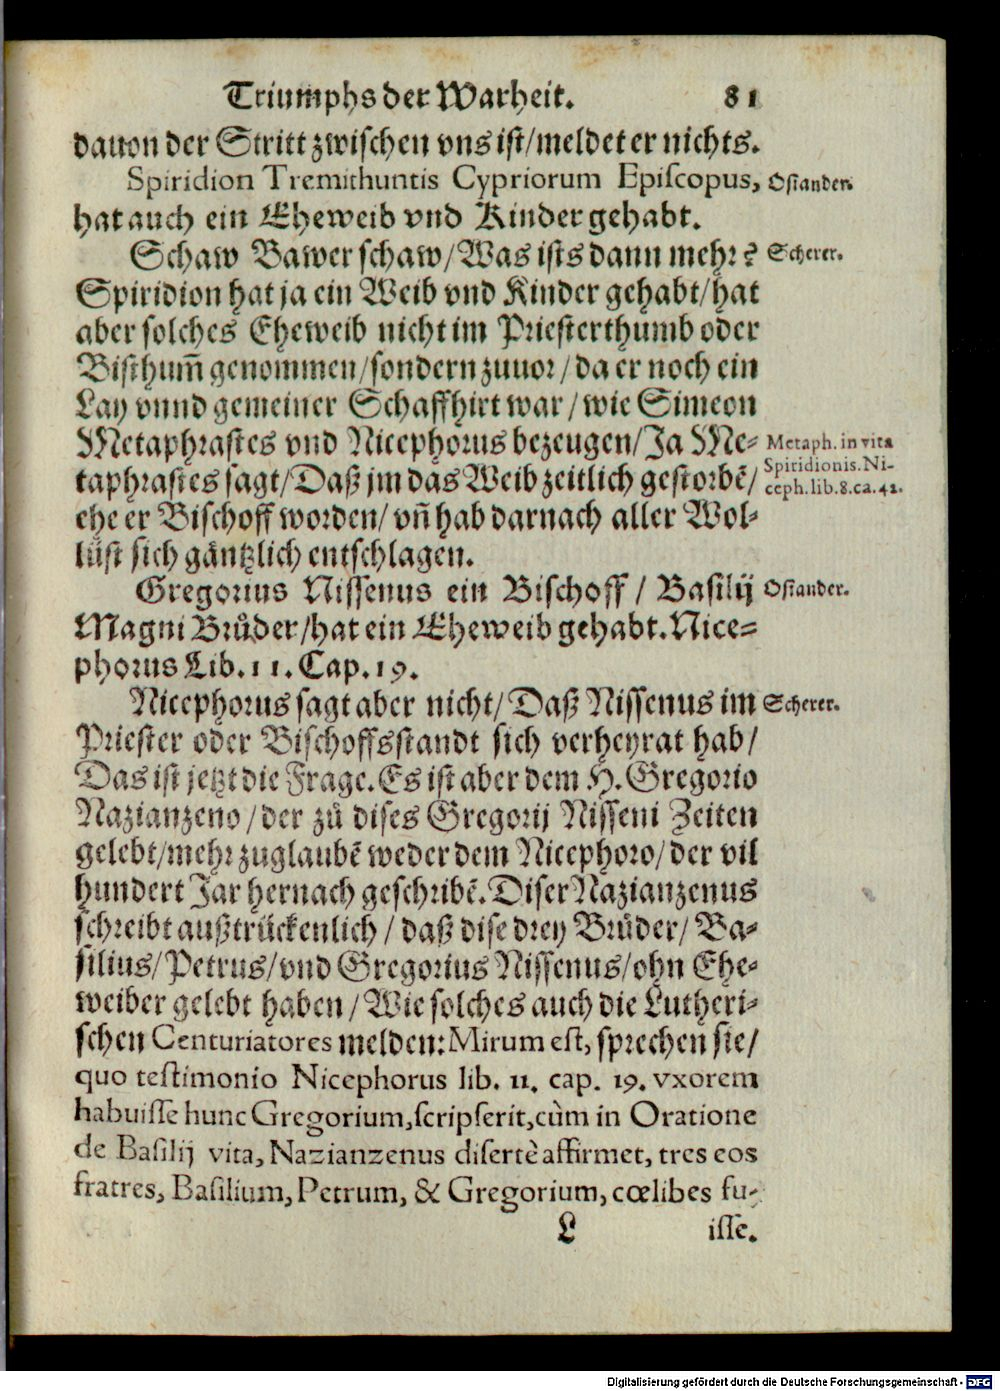 Triumphs der Warheit. 81
dauon der Stritt zwischen vns ist/meldet er nichts.
Spiridion Tremithuntis Cypriorum Episcopus, Osiander.
hat auch ein Eheweib vnd Kinder gehabt.
Schaw Bawer schaw/Was ists dann mehr? Scherer.
Spiridion hat ja ein Weib vnd Kinder gehabt/hat
aber solches Eheweib nicht im Priesterthumb oder
Bisthum̃ genommen/sondern zuuor/da er noch ein
Lay vnnd gemeiner Schaffhirt war/wie Simeon
Metaphrastes vnd Nicephorus bezeugen/Ja Me- Metaph. in vita
taphrastes sagt/Daß jm das Weib zeitlich gestorbẽ/ Spiridionis. Ni-
ceph. lib. 8. ca. 42.
ehe er Bischoff worden/vñ hab darnach aller Wol-
lüst sich gäntzlich entschlagen.
Gregorius Nissenus ein Bischoff / Basilij Osiander.
Magni Brůder/hat ein Eheweib gehabt. Nice-
phorus Lib. 11. Cap. 19.
Nicephorus sagt aber nicht/Daß Nissenus im Scherer.
Priester oder Bischoffsstandt sich verheyrat hab/
Das ist jetzt die Frage. Es ist aber dem H. Gregorio
Nazianzeno/der zů dises Gregorij Nisseni Zeiten
gelebt/mehr zuglaubẽ weder dem Nicephoro/der vil
hundert Jar hernach geschribẽ. Diser Nazianzenus
schreibt außtrückenlich/daß dise drey Brůder/Ba-
silius/Petrus/vnd Gregorius Nissenus/ohn Ehe-
weiber gelebt haben/Wie solches auch die Lutheri-
schen Centuriatores melden: Mirum est, sprechen sie/
quo testimonio Nicephorus lib. 11. cap. 19. vxorem
habuisse hunc Gregorium, scripserit, cùm in Oratione
de Basilij vita, Nazianzenus disertè affirmet, tres eos
fratres, Basilium, Petrum, & Gregorium, cœlibes fu-
L isse.
Digitalisierung gefördert durch die Deutsche Forschungsgemeinschaft - DFG